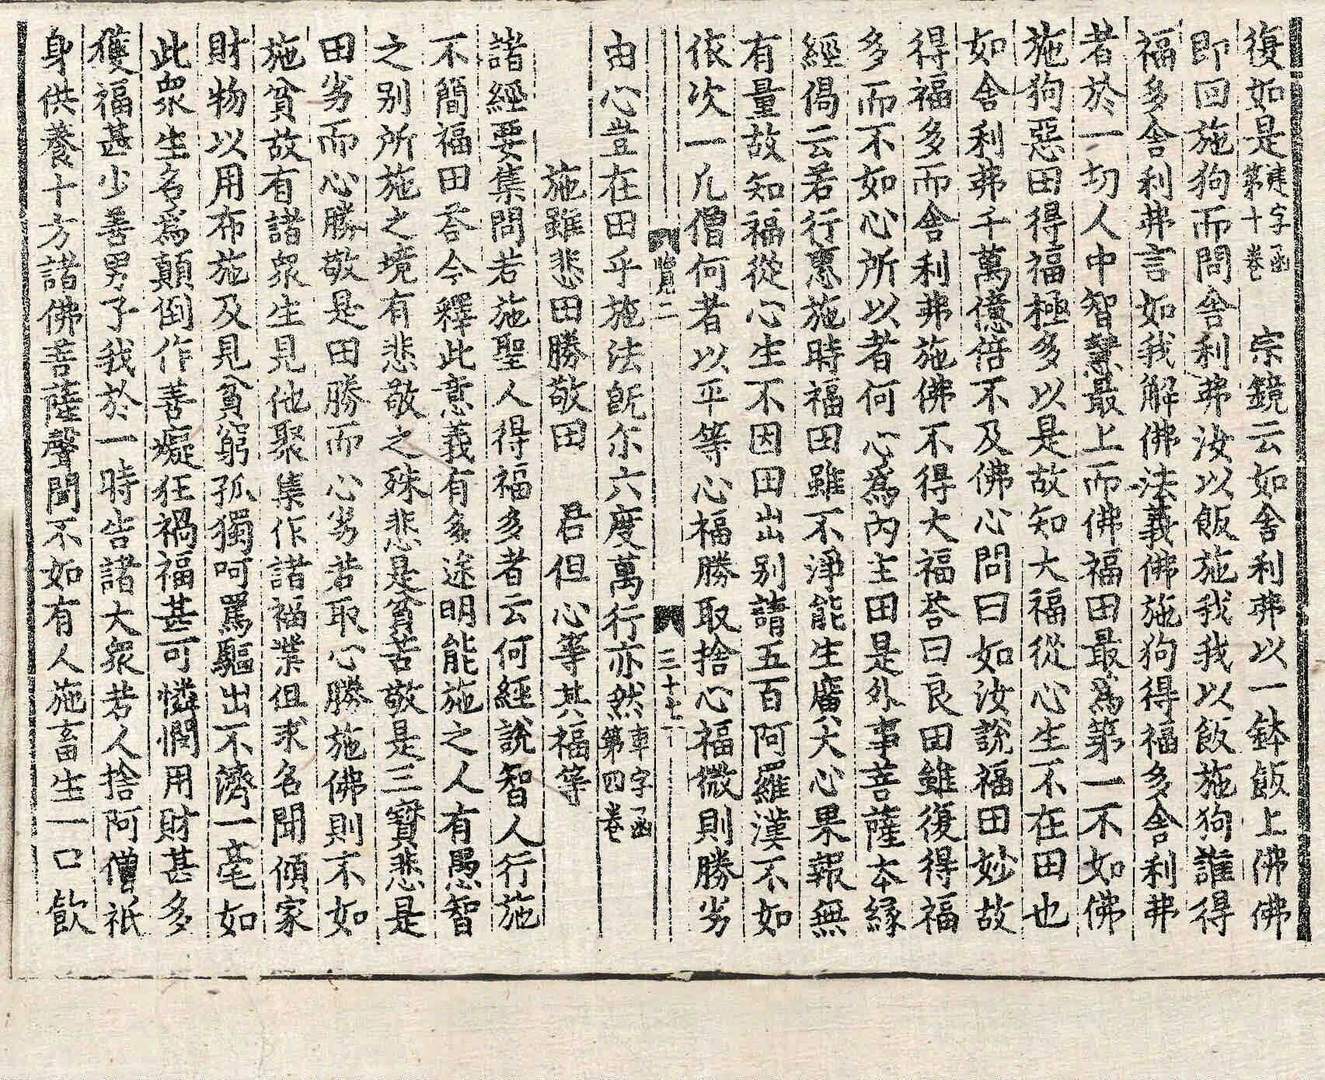 復如是建字函第十卷　宗鏡云如舍利弗以一鉢飯上佛佛
即回施狗而問舍利弗汝以飯施我我以飯施狗誰得
福多舍利弗言如我解佛法義佛施狗得福多舍利弗
者於一切人中智慧最上而佛福田最爲第一不如佛
施狗惡田得福極多以是故知大福從心生不在田也
如舍利弗千萬億倍不及佛心問曰如汝說福田妙故
得福多而舍利弗施佛不得大福荅曰良田雖復得福
多而不如心所以者何心爲內主田是外事菩薩本緣
經偈云若行惠施時福田雖不淨能生廣大心果報無
有量故知福從心生不因田出别請五百阿羅漢不如
依次一凡僧何者以平等心福勝取捨心福微則勝劣
覽二　三十七
由心豈在田乎施法旣尔六度萬行亦然車字函第四卷
施雖悲田勝敬田　君但心等其福等
諸經要集問若施聖人得福多者云何經說智人行施
不簡福田荅今釋此意義有多途明能施之人有愚智
之别所施之境有悲敬之殊悲是貧苦敬是三寶悲是
田劣而心勝敬是田勝而心劣若取心勝施佛則不如
施貧故有諸衆生見他聚集作諸福業但求名聞傾家
財物以用布施及見貧窮孤獨呵罵驅出不濟一毫如
此衆生名爲顛倒作善癡狂禍福甚可憐憫用財甚多
獲福甚少善男子我於一時告諸大衆若人捨阿僧祇
身供養十方諸佛菩薩聲聞不如有人施畜生一口飲